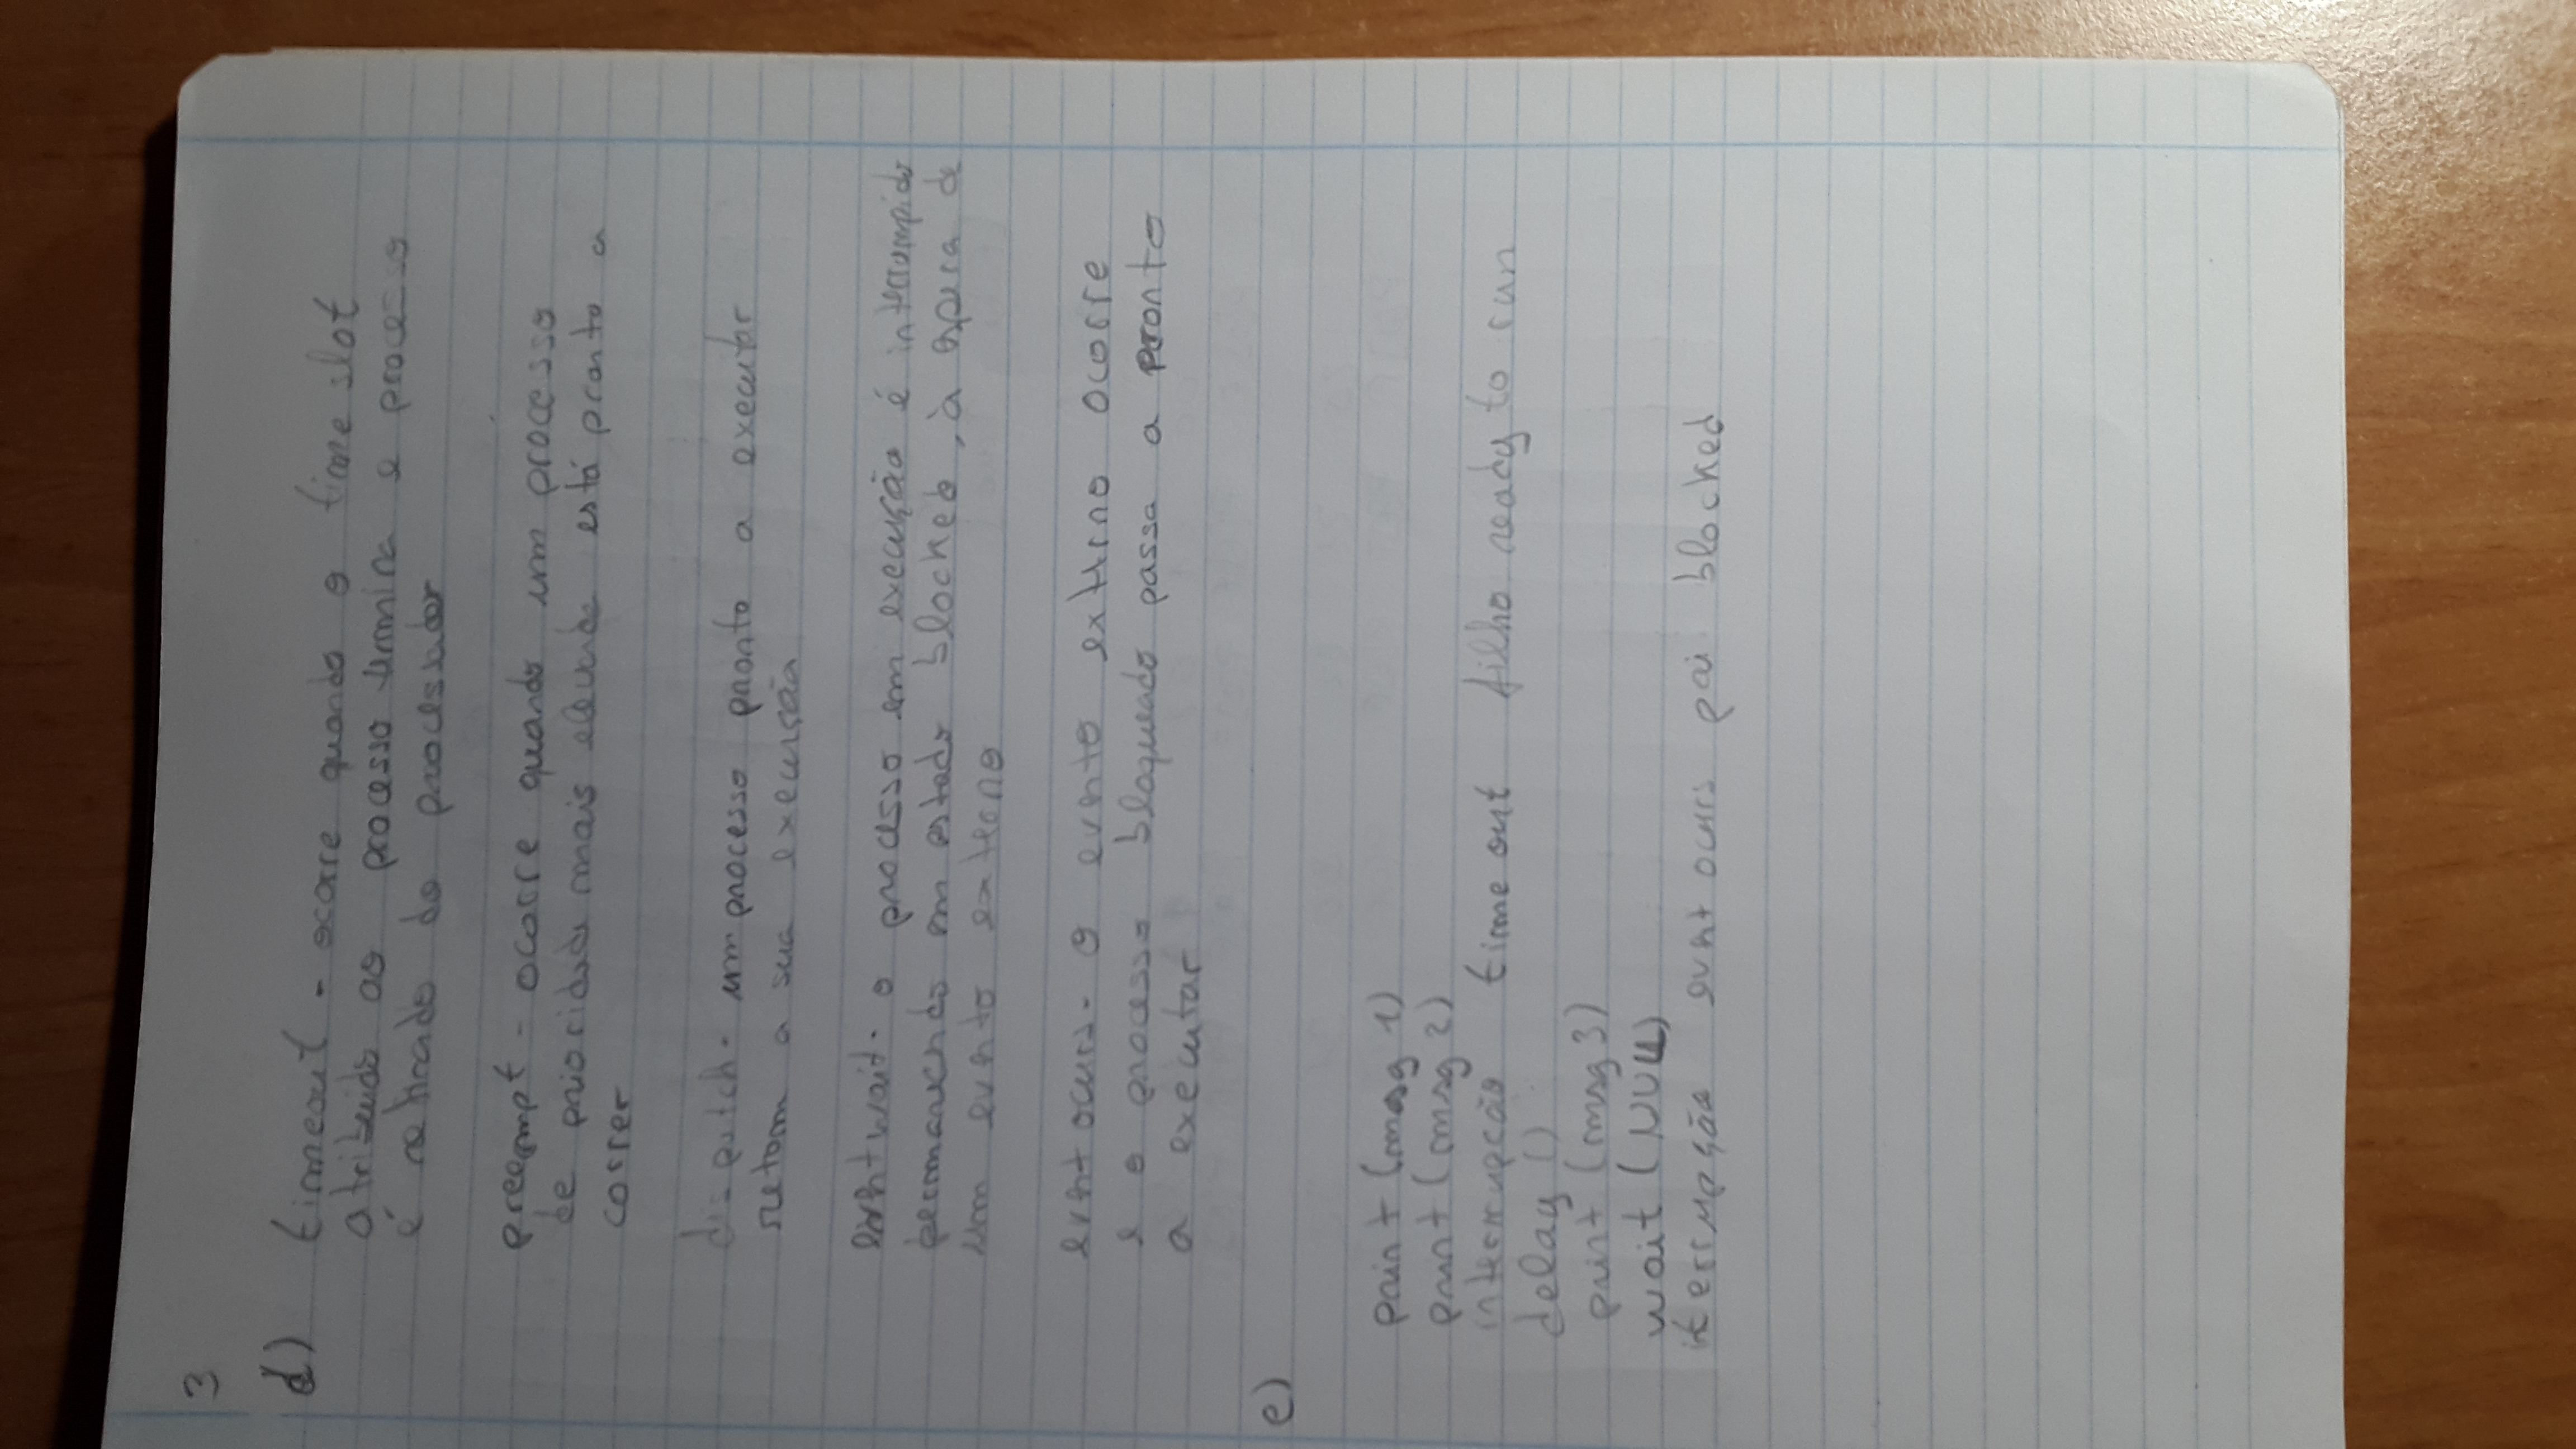 3
d) timeout - ocorre quando o time slot
atribuido ao processo termina e processo
é retirado do processador
preempt - ocorre quando um processo
de prioridade mais elevada está pronto a
correr
dispatch - um processo pronto a executar
retoma a sua execução
eventwait - o processo em execução é interrompido
permanecendo em estado blocked, à espera de
um evento externo
event ocurs - o evento externo ocorre
e o processo bloqueado passa a pronto
a executar
e)
print (msg 1)
print (msg 2)
interrupção time out filho ready to run
delay ()
print (msg 3)
wait (NULL)
iterrupção event ocurs pai blocked